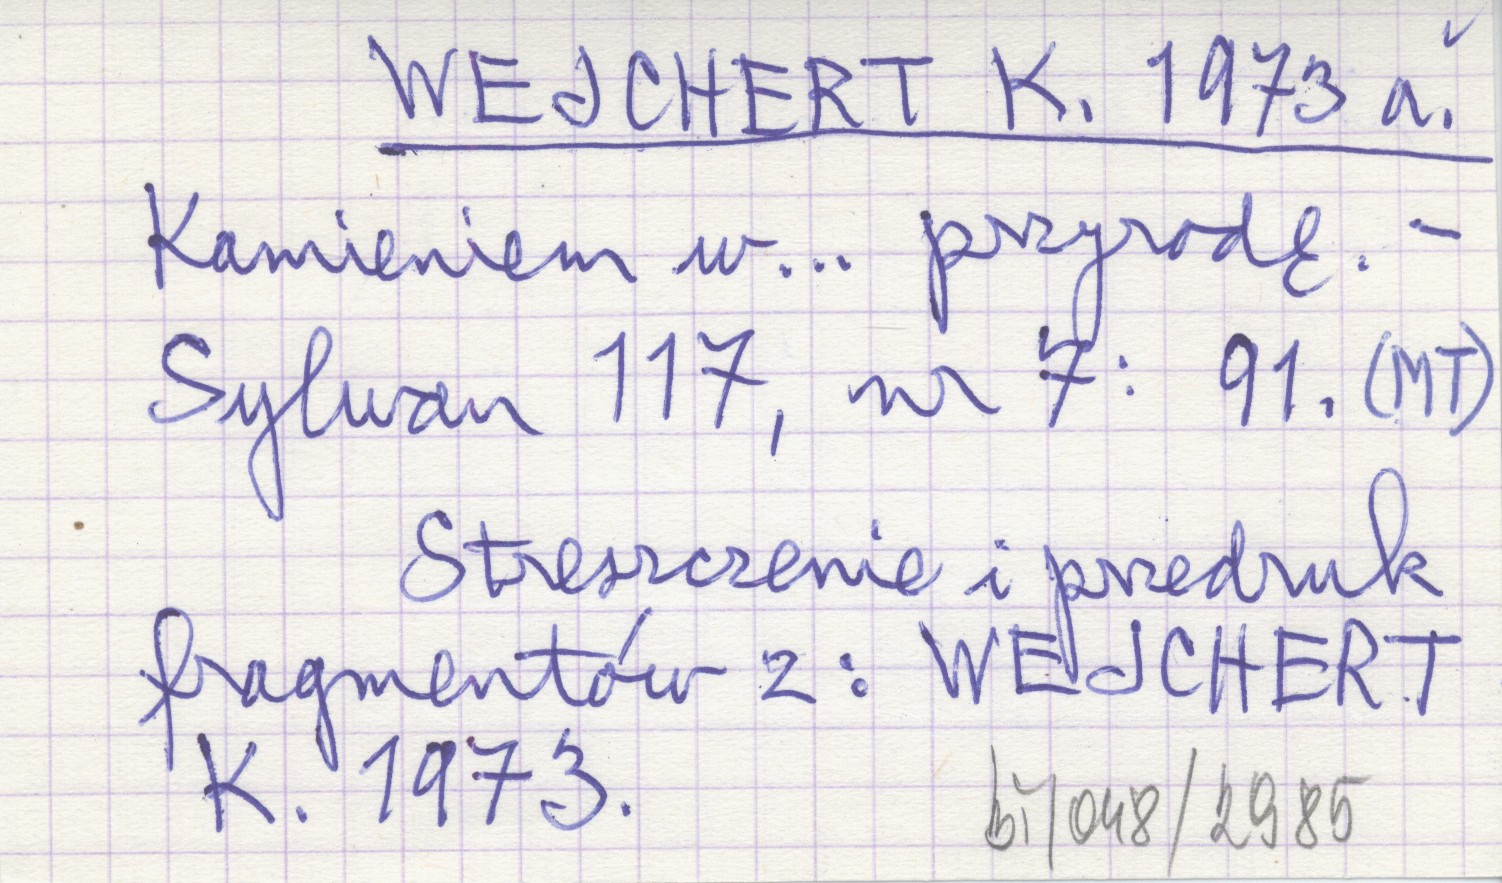 WEJCHERT K. 1973 a.
Kamieniem w... przyrodę. -
Sylwan 117, nr 7: 91. (MT)
Streszczenie i przedruk
fragmentów z: WEJCHERT
K. 1973.
bi/048/2985